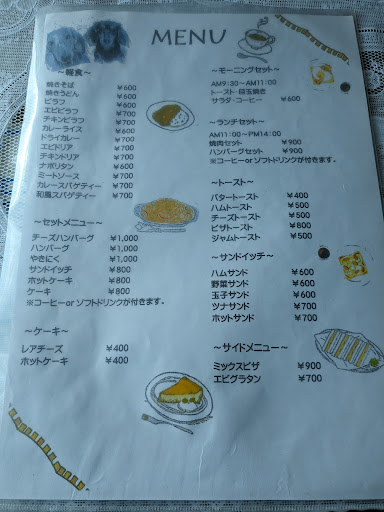 MENU
～軽食～
焼きそば ¥600
焼きうどん ¥600
ピラフ ¥600
エビピラフ ¥700
チキンピラフ ¥700
カレーライス ¥600
ドライカレー ¥700
エビドリア ¥700
チキンドリア ¥700
ナポリタン ¥600
ミートソース ¥700
カレースパゲティー ¥700
和風スパゲティー ¥700
～セットメニュー～
チーズハンバーグ ¥1,000
ハンバーグ ¥1,000
やきにく ¥1,000
サンドイッチ ¥800
ホットケーキ ¥800
ケーキ ¥800
※コーヒーor ソフトドリンクが付きます。
～ケーキ～
レアチーズ ¥400
ホットケーキ ¥400
～モーニングセット～
AM9:30～AM11:00
トースト・目玉焼き
サラダ・コーヒー ¥600
～ランチセット～
AM11:00～PM14:00
焼肉セット ¥900
ハンバーグセット ¥900
※コーヒーor ソフトドリンクが付きます。
～トースト～
バタートースト ¥400
ハムトースト ¥500
チーズトースト ¥500
ピザトースト ¥800
ジャムトースト ¥500
～サンドイッチ～
ハムサンド ¥600
野菜サンド ¥600
玉子サンド ¥600
ツナサンド ¥700
ホットサンド ¥700
～サイドメニュー～
ミックスピザ ¥900
エビグラタン ¥700